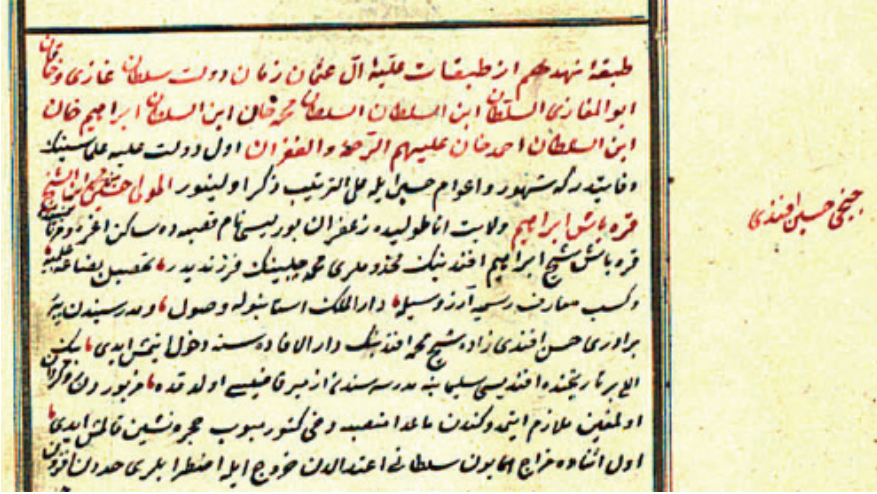 طبقهٔ نهدهم از طبقات علیهٔ آل عثمان زمان دولت سلطان غازی وخاقان
ابو المغازی السلطان ابن السلطان السلطان محمد خان ابن السلطان ابراهیم خان
ابن السلطان احمد خان علیهم الرحمة والغفران اول دولت علیه علماسینك
وفایتدرکه شهور واعوام حسبیله علی الترتیب ذکر اولینور المولی حسین ابن الشیخ
قره باش ابراهیم ولایت اناطولیده زعفران بورلیسی نام قصبه ده ساکن
قره باش شیخ ابراهیم افندینك مخدوملری محمد چلبینك فرزندیدر تحصیل بضاعهٔ علمیه
وکسب معارف رسمیه آرزوسیله دار الملك استانبوله وصول ومدرسیندن
برادری حسن افندی زاده شیخ محمد افندینك دار الافاده سنه دخول ایتمش ایدی
الی برتاریخنده افندیسی سلیمانیه مدرسه سندن ازمیر قاضیسی اولدقده مزبور دخی
اولمغین ملازم ایتدوکندن ماعدا منصبده دخی حجره نشین قالمش ایدی
اول اثناده مزاج همایون سلطانی اعتدالدن خروج ایله اضطرابلری حددن افزون
جنجی حسین افندی